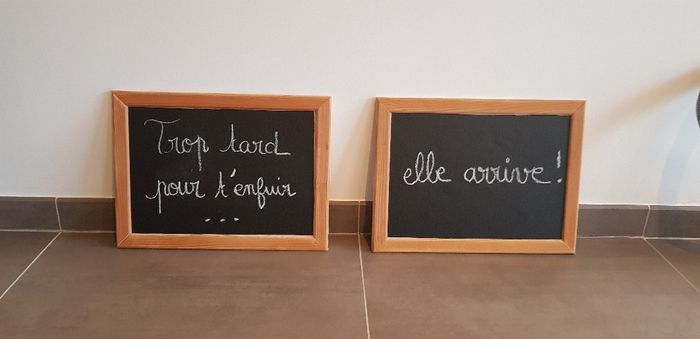 Trop tard
pour t'enfuir
...
elle arrive !